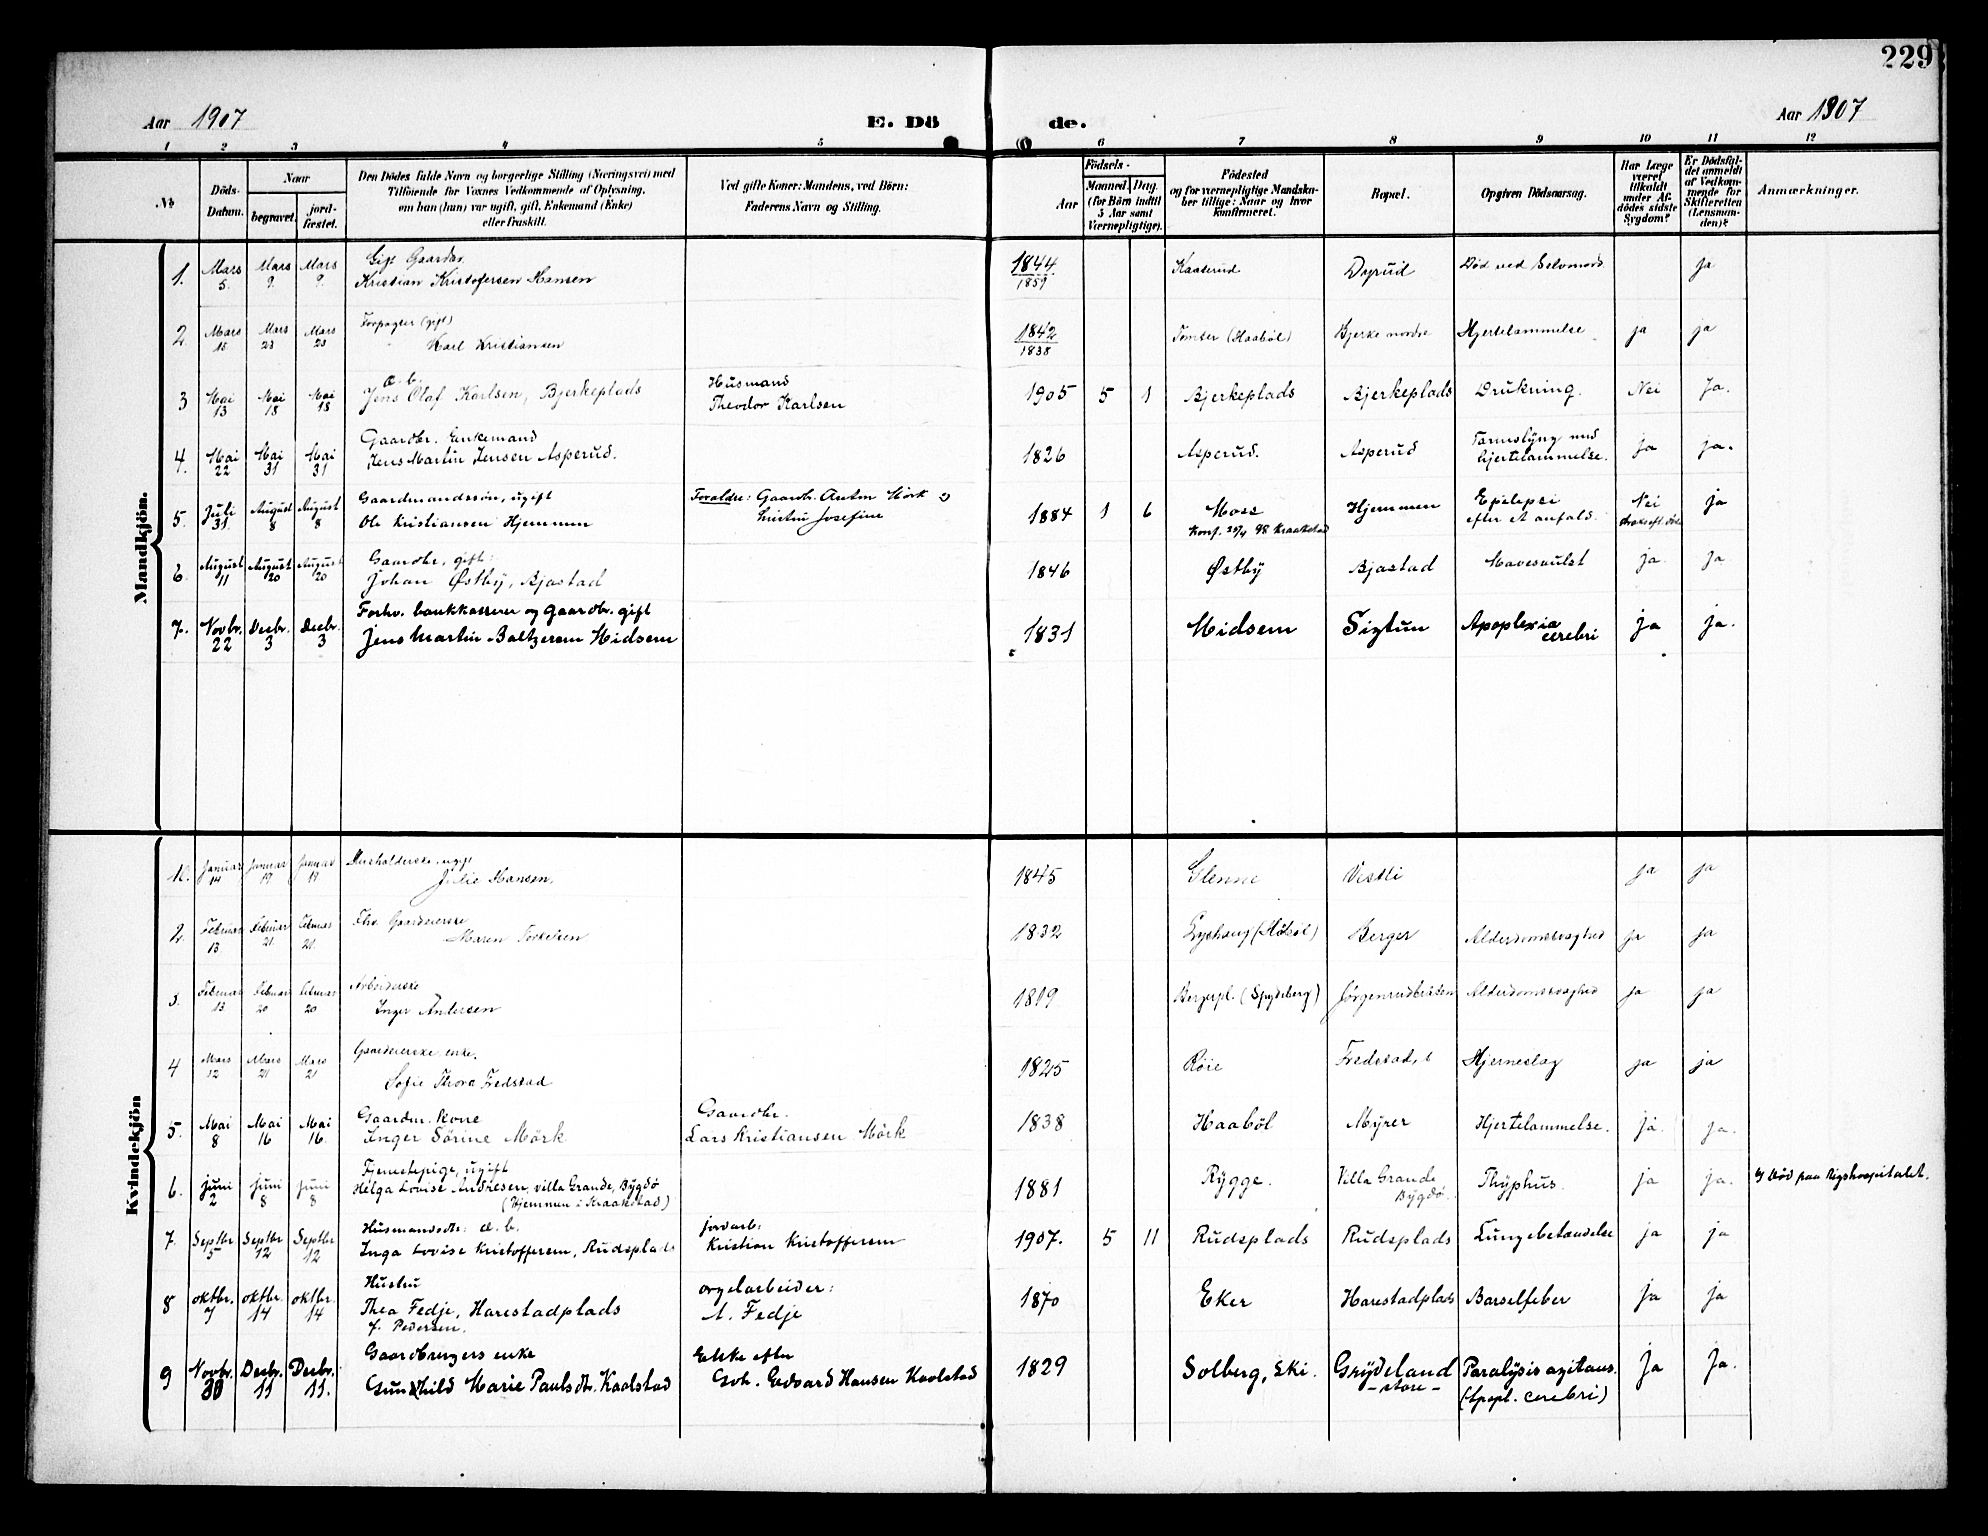 229
Aar 1907
E. Dö
de.
Aar 1907
1 2 3 4 5 6 7 8 9 10 11 12
No
Döds-Datum.
Naar
begravet.
jord-fæstet.
Den Dödes fulde Navn og borgerlige Stilling (Næringsvei) med
Tilföiende for Voxnes Vedkommende af Oplysning,
om han (hun) var ugift, gift, Enkemand (Enke)
eller fraskilt.
Ved gifte Koner: Mandens, ved Börn:
Faderens Navn og Stilling.
Födsels-
Aar
Maaned. Dag.
(for Börn indtil
5 Aar samt
Værnepligtige).
Födested
og for værnepligtige Mandska-
ber tillige: Naar og hvor
konfirmeret.
Bopæl.
Opgiven Dödsaarsag.
Har Læge
været
tilkaldt
under Af-
dödes sidste
Sygdom?
Er Dödsfal-
det anmeldt
af Vedkom-
mende for
Skifteretten
(Lensman-
den)?
Anmærkninger.
Mandkjön.
1. Mars 5. Mars 9. Mars 9. Gift Gaardbr. Kristian Kristofersen Hansen 1844 1859 Kaaterud Dyrud Död ved Selvmord ja
2 Mars 15 Mars 23 Mars 23 Forpagter (gift) Karl Kristiansen 1842 1838 Tomter (Haaböl) Bjerke nordre Hjertelammelse ja ja
3 Mai 13 Mai 18 Mai 18 æ. b. Jens Olaf Karlsen, Bjerkeplads Husmand Theodor Karlsen 1905 5 1 Bjerkeplads Bjerkeplads Drukning. Nei Ja.
4. Mai 22 Mai 31 Mai 31 Gaardbr. Enkemand Jens Martin Jensen Asperud. 1826 Asperud. Asperud Tarmslyng med hjertelammelse. ja ja.
5. Juli 31 August 8 August 8 Gaardmandssön, ugift Ole Kristiansen Hjemmen Foraldre: Gaardbr. Anton Mörk Kristine Josefine 1884 1 6 Moss Konf. 25/9 98 Kraakstad Hjemmen Epilepsi efter et anfald. Nei ja
6. August 11 August 20 August 20 Gaardbr, gift: Johan Østby, Bjastad 1846 Østby Bjastad Mavesvulst ja ja
7. Novbr. 22 Desbr. 3 Desbr. 3 Forhv. bankkasserer og Gaardbr. gift Jens Martin Baltzersen Midsem 1831 Midsem Sigtun Apoplexia cerebri ja ja.
Kvindekjön
1. Januar 14 Januar 19 Januar 19 Husholderske, ugift Julie Hansen. 1845 Glenne Vestli ja ja
2. Februar 13 Februar 21. Februar 21. Fhv. Gaardeierske Maren Torkelsen 1832 Berger Alderdomssvaghed ja ja
3. Februar 13 Februar 20 Februar 20 Arbeiderske Inger Andersen 1819 Bergerpl. (Spydeberg) Jörgenrudbråten Alderdomssvaghed ja ja
4 Mars 12 Mars 21 Mars 21 Gaardeierske enke. Sofie Thora Fredstad 1825 Röie Fredstad, Hjerneslag ja ja
5. Mai 8 Mai 16 Mai 16. Gaardm. kone Inger Sörine Mörk Gaardbr. Lars Kristiansen Mörk 1838 Haaböl Myrer Hjertelammelse. ja. ja.
6. Juni 2 Juni 8 Juni 8 Tjenestepige, ugift Helga Lovise Andresen, villa Grande, Bygdö (Hjemmen i Kraakstad) 1881 Rygge. Villa Grande Bygdö. Thyphus. ja ja. Död paa Rigshospitalet.
7. Septbr 5 Septbr 12 Septbr 12 Husmandsdtr: æ. b. Inga Lovise Kristoffersen, Rudsplads jordarb: Kristian Kristoffersen 1907. 5 11 Rudsplads Rudsplads Lungebetændelse ja ja
8 oktbr. 7 oktbr. 14 oktbr. 14 Hustru Thea Fedje, Harestadplads f. Pedersen. orgelarbeider: A. Fedje 1870 Eker Harestadplads Barselfeber ja ja
9 Novbr. 30 Desbr. 11 Desbr. 11. Gaardbrugers enke Gunhild Marie Paulsdtr. Kaalstad Enke efter Joh. Edvard Hansen Kaalstad 1829 Solberg, Ski. Grydeland - store - Paralysis agitans. (Apopl. cerebri) Ja Ja.